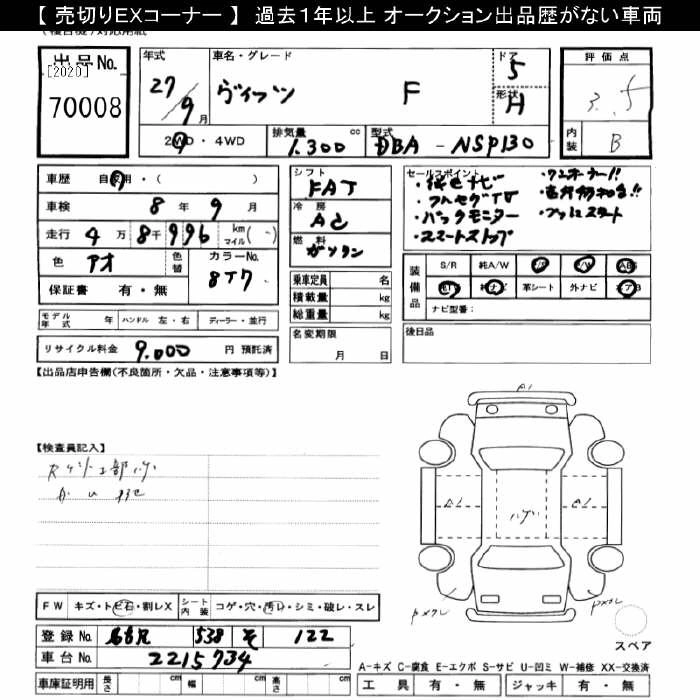 【 売切りEXコーナー 】 過去1年以上 オークション出品歴がない車両
出品No.
[2020]
70008
年式
27/9月
車名・グレード
ヴィッツ F
ドア
5
形状
H
評価点
3.5
内装
B
2WD・4WD
排気量
1.300 cc
型式
DBA-NSP130
車歴 自家用・( )
車検 8年 9月
走行 4万 8千 996 km マイル( )
色 アオ
色替
カラーNo.
8T7
保証書 有・無
シフト
FAT
冷房
AC
燃料
ガソリン
乗車定員 名
積載量 kg
総重量 kg
セールスポイント
・純正ナビ
・フルセグTV
・バックモニター
・スマートストップ
・ワンオーナー!!
・プッシュスタート
装備品
S/R 純A/W P/S P/W ABS
純TV 純ナビ 革シート 外ナビ エアB
ナビ型番:
モデル年式 年
ハンドル 左・右
ディーラー・並行
名変期限
月 日
後日品
リサイクル料金 9.000 円 預託済
【出品店申告欄(不良箇所・欠品・注意事項等)】
【検査員記入】
A1
A1
A1
ハゲ
FW キズ・トビ石・割レX
シート内装 コゲ・穴・汚レ・シミ・破レ・スレ
登録No. 538 そ 122
車台No. 2215734
車庫証明用 長さ cm 幅 cm 高さ cm
スペア
A-キズ C-腐食 E-エクボ S-サビ U-凹ミ W-補修 XX-交換済
工具 有・無 ジャッキ 有・無